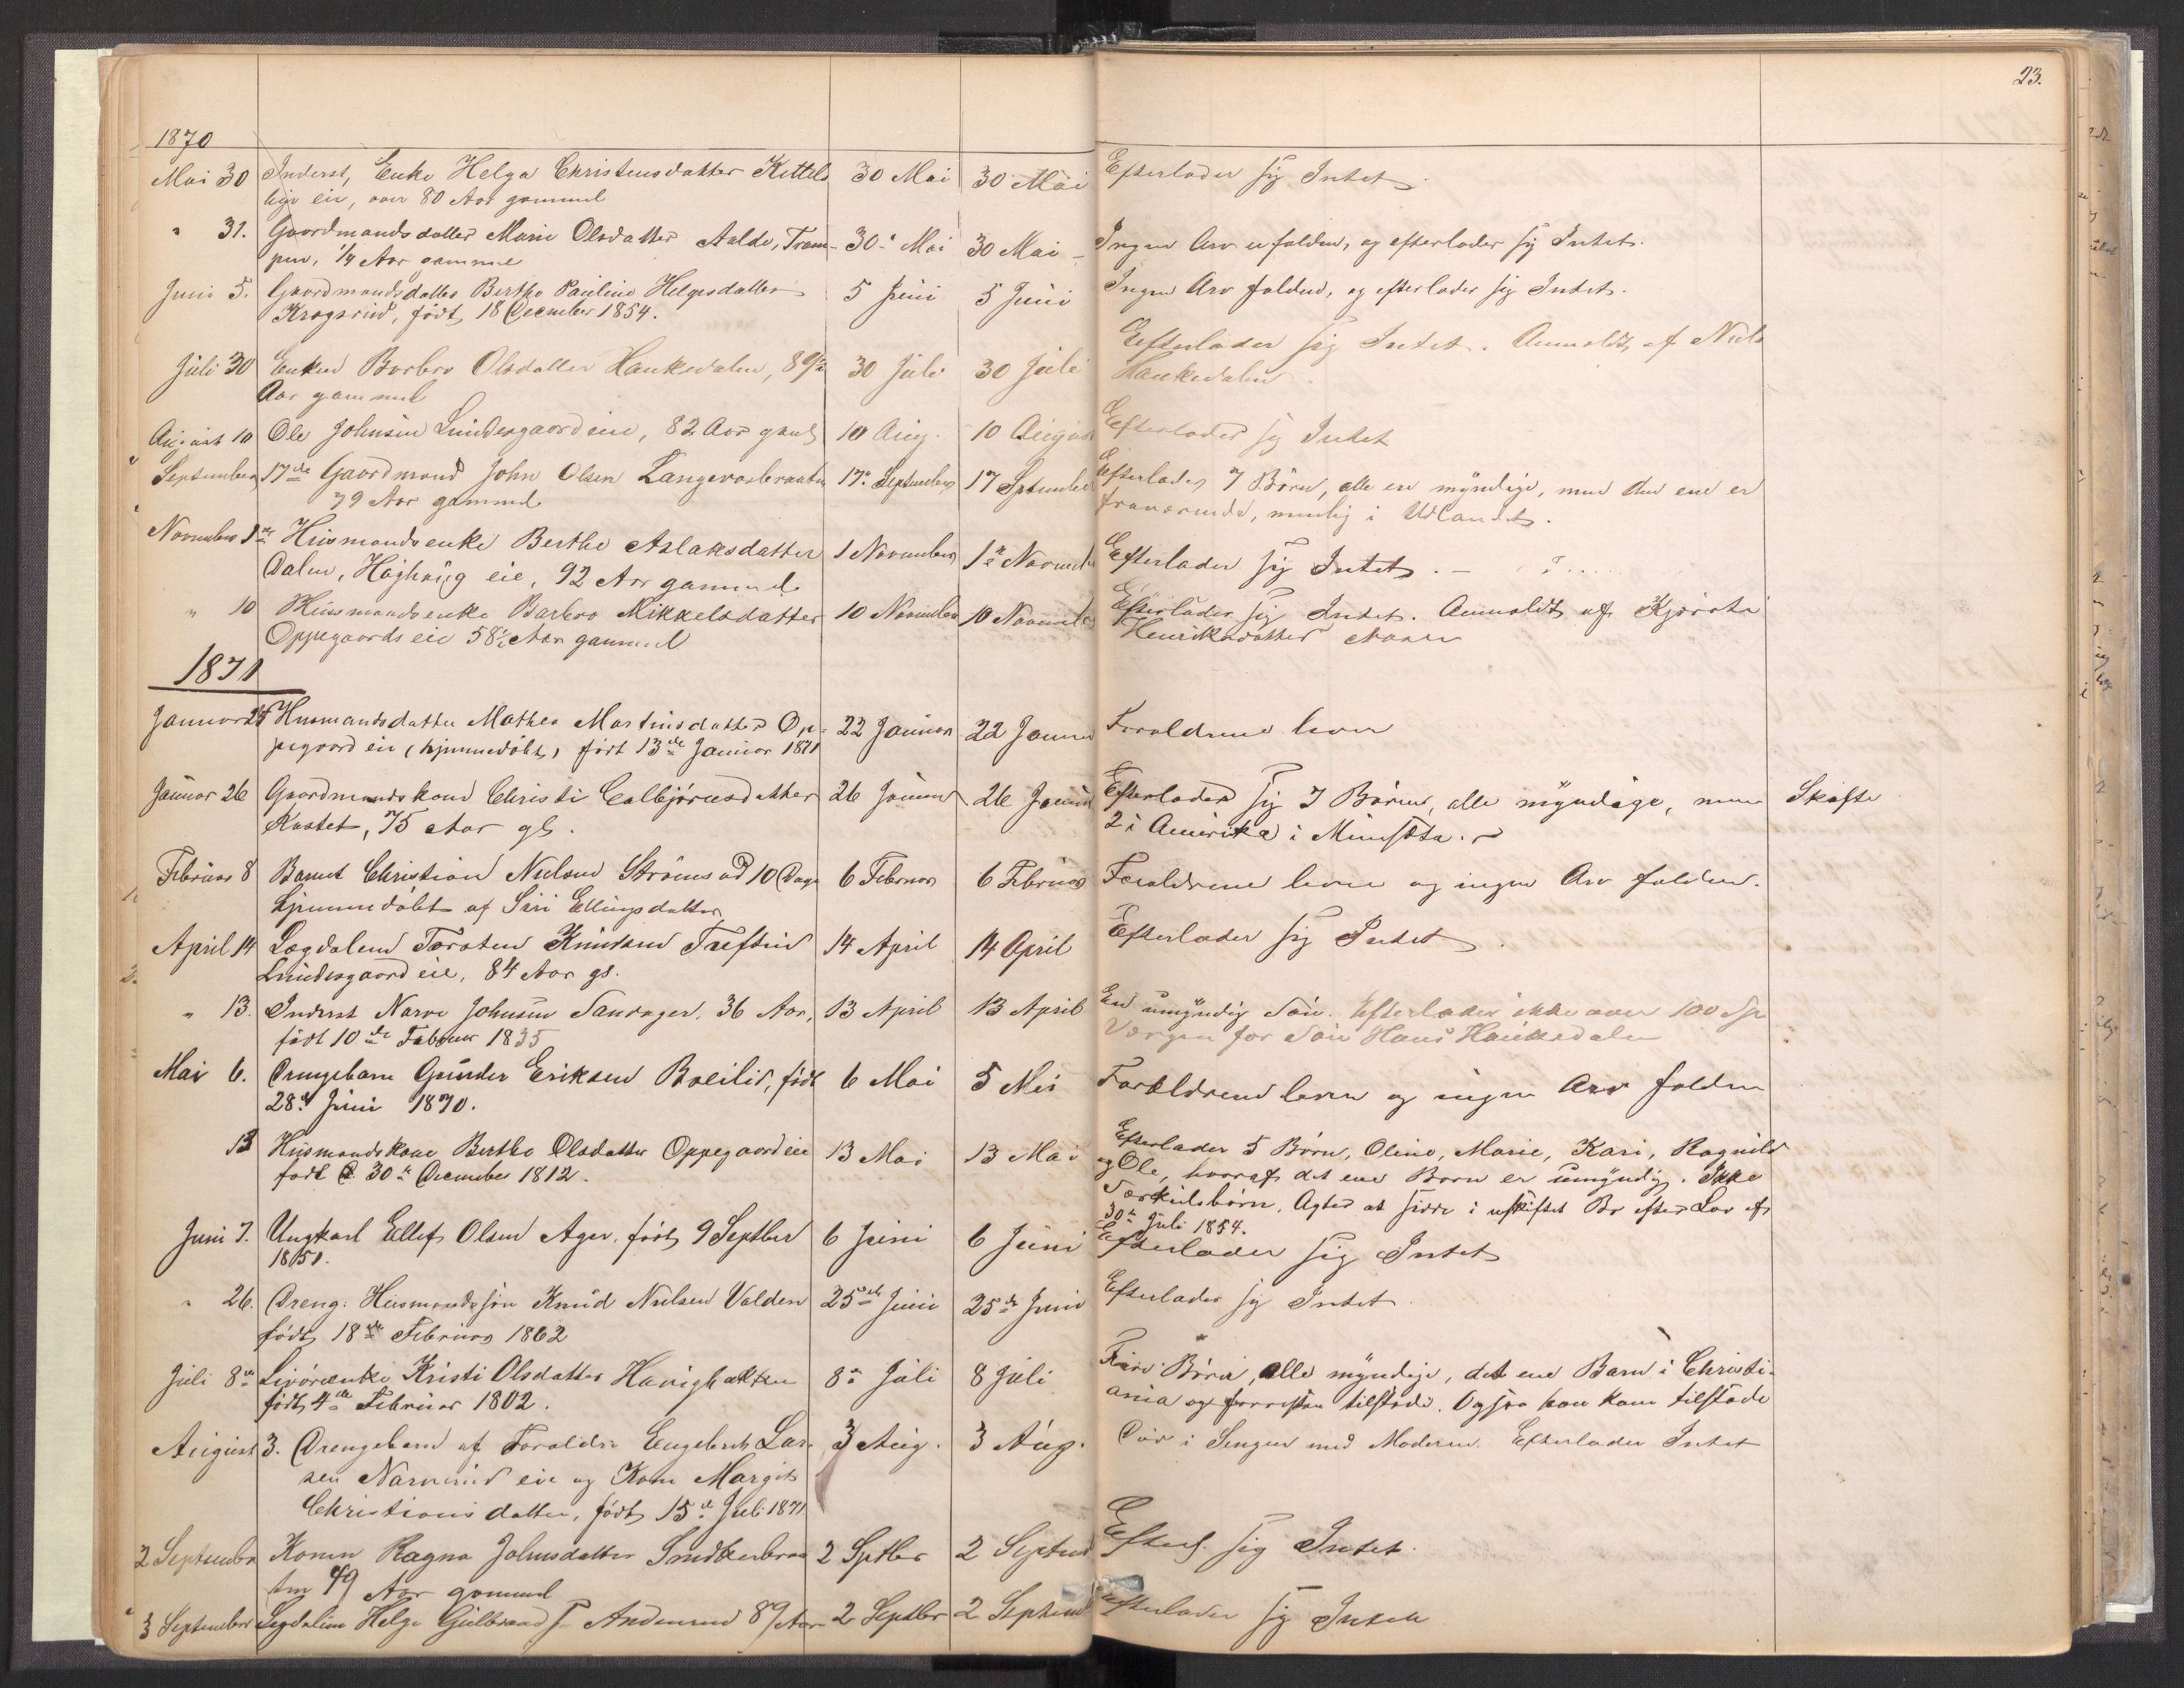 23.
1870
Mai 30 Inderst, Enke Helga Christensdatter Kittels 30 Mai 30 Mai Efterlader sig Intet.
eie, over 80 Aar gammel
" 31. Gaardmandsdatter Marie Olsdatter Aalde, Tram- 30te Mai 30 Mai Ingen Arv er falden, og efterlader sig Intet.
pen, 1/4 Aar gammel
Juni 5. Gaardmandsdatter Berthe Pauline Helgesdatter 5 Juni 5 Juni Ingen Arv falden, og efterlader sig Intet.
Krogsrud, født 18 December 1854.
Efterlader sig Intet. Anmeldt af Niels
Juli 30 Enken Barbro Olsdatter Haukedalen, 89 1/2 30 Juli 30 Juli Haukedalen
Aar gammel
August 10 Ole Johnsen Lundesgaardeie, 82 Aar gml 10 Aug. 10 August Efterlader sig Intet
September 17de Gaardmand John Olsen Langevasbraaten 17. September 17 September Efterlader 7 Børn, alle ere myndige, men den ene er
79 Aar gammel fraværende, nemlig i Udlandet.
November 1ste Husmandsenke Berthe Aslaksdatter 1 November 1ste November Efterlader sig Intet. -
Dalen, Høghaug eie, 92 Aar gammel
" 10 Husmandsenke Barbro Mikkelsdatter 10 November 10 November Efterlader sig Intet. Anmeldt af Kjersti
Oppegaards eie 58 1/2 Aar gammel Henriksdatter Moen
1871
Januar 25 Husmandsdatter Mathea Martinsdatter Op- 22 Januar 22 Januar Forældrene lever
pegaard eie (hjemmedøbt) født 13de Januar 1871
Januar 26 Gaardmandskone Christi Colbjørnsdatter 26 Januar 26 Januar Efterlader sig 7 Børn, alle myndige, men Skifte
Rustet, 75 Aar gl. 2 i Amerika i Minisota.
Februar 8 Barnet Christian Nielsen Strømsød 10 Dage 6 Februar 6 Februar Forældrene lever og ingen Arv falden.
hjemmedøbt af Siri Ellingsdatter
April 14 Lægdalem Torsten Knudsen Tuftin 14 April 14 April Efterlader sig Intet.
Lundesgaard eie, 84 Aar gl.
" 13. Inderst Narve Johnsen Sandager, 36 Aar, 13 April 13 April En umyndig Søn. Efterlader ikke over 100 Spd
født 10de Februar 1835 Værgen for Søn Hans Haukedalen
Mai 6. Drengebarn Gunder Eriksen Boeilid, født 6 Mai 5 Mai Forældrene lever og ingen Arv falden
28de Juni 1870.
13 Husmandskone Berthe Olsdatter Oppegaard eie 13 Mai 13 Mai Efterlader 5 Børn, Oline, Marie, Kari, Ragnild
født 30te December 1812. og Ole, hvoraf det ene Barn er umyndig. Ikke
Særkuldsbørn. Agter at sidde i uskiftet Bo efter Lov af
30te Juli 1854.
Juni 7. Ungkarl Ellef Olsen Ager, født 9 Septber 6 Juni 6 Juni Efterlader sig Intet
1851.
" 26. Dreng: Husmandssøn Knud Nielsen Valden 25de Juni 25de Juni Efterlader sig Intet
født 18de Februar 1862
Juli 8de Livørenke Kristi Olsdatter Haughakken 8de Juli 8 Juli Fire Børn, alle myndige, det ene Barn i Christi-
født 4de Februar 1802. ania og forresten tilstede. Ogsaa han kan tilstede
August 3. Drengebarn af Forældre Engebret Lar- 3 Aug. 3 Aug. Død i Sengen med Moderen. Efterlader Intet
sen Narverud eie og Kone Margit
Christiansdatter, født 15de Juli 1871
2 September Konen Ragna Johnsdatter Snidkerbraa 2 Septber 2 September Efterl. sig Intet.
ten 49 Aar gammel
3 September Legdalem Helge Gulbrands. Andersrud 89 Aar 2 Septber 2 September Efterlader sig Intet